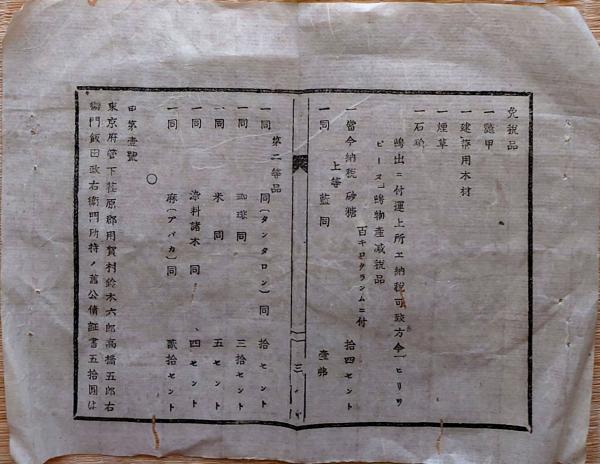 免税品
一鼈甲
一建築用木材
一煙草
一石鹼
輸出ニ付運上所エ納税可致方今「ヒリツ
ピーヌ」島物産減税品
百キログランムニ付
一當今納税 砂糖 拾四セント
上等
一同 藍 同 壹弗
三
第二等品
一同 同(タンタロン)同 拾セント
一同 珈琲同 三拾セント
一同 米同 五セント
一同 染料諸木同 四セント
一同 麻(アバカ)同 貳拾セント
甲第壹號
東京府管下荏原郡用賀村鈴木六郎高橋五郎右
衞門飯田政右衞門所持ノ舊公債証書五拾圓は